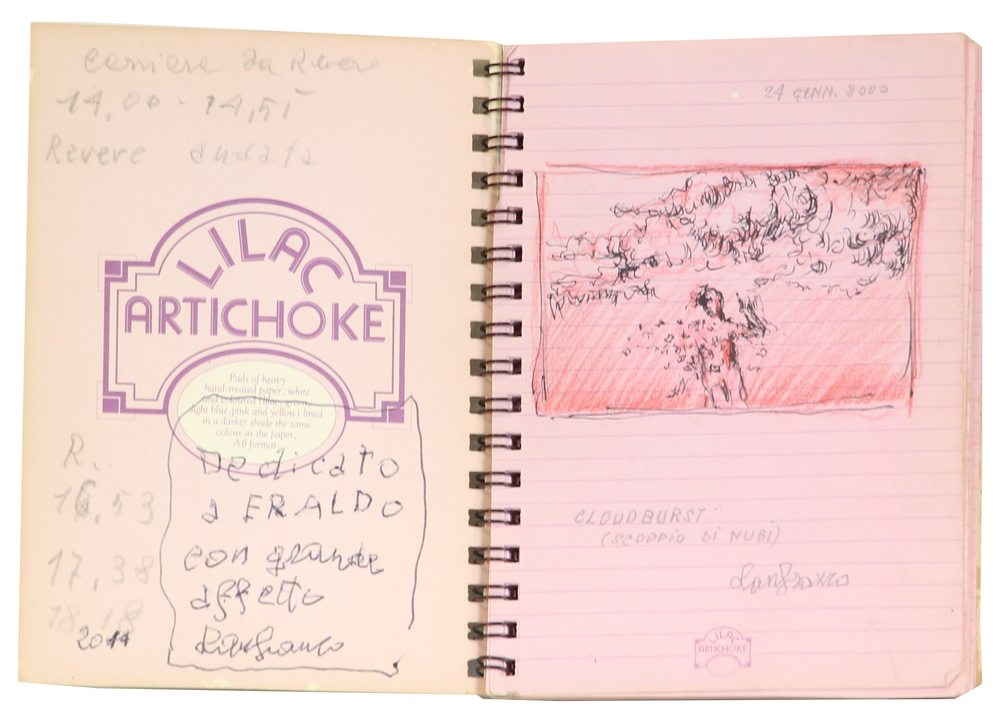 corriere da Revere
14,00 - 14,51
Revere andata
LILAC
ARTICHOKE
Pads of heavy
hand-treated paper, white
and coloured
light blue, pink and yellow) lined
in a darker shade the same
colour as the paper.
A6 format.
R.
16,53
17,38
18,18
2011
Dedicato
a ERALDO
con grande
affetto
Lanfranco
24 GENN. 2000
CLOUDBURST
(SCOPPIO DI NUBI)
Lanfranco
LILAC
ARTICHOKE